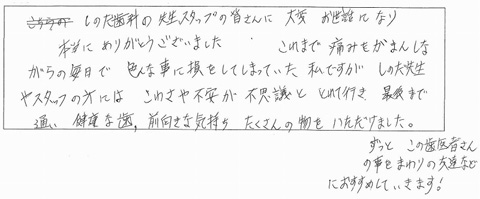 しの大歯科の先生スタッフの皆さんに 大変 お世話になり
本当にありがとうございました これまで痛みをがまんしな
がらの毎日で 色んな事に損をしてしまっていた 私ですが しの大先生
やスタッフの方には こわさや不安が 不思議と とれて行き 最後まで
通い 健康な歯、前向きな気持ち たくさんの物を いただけました。
ずっと この歯医者さん
の事をまわりの友達など
におすすめしていきます!